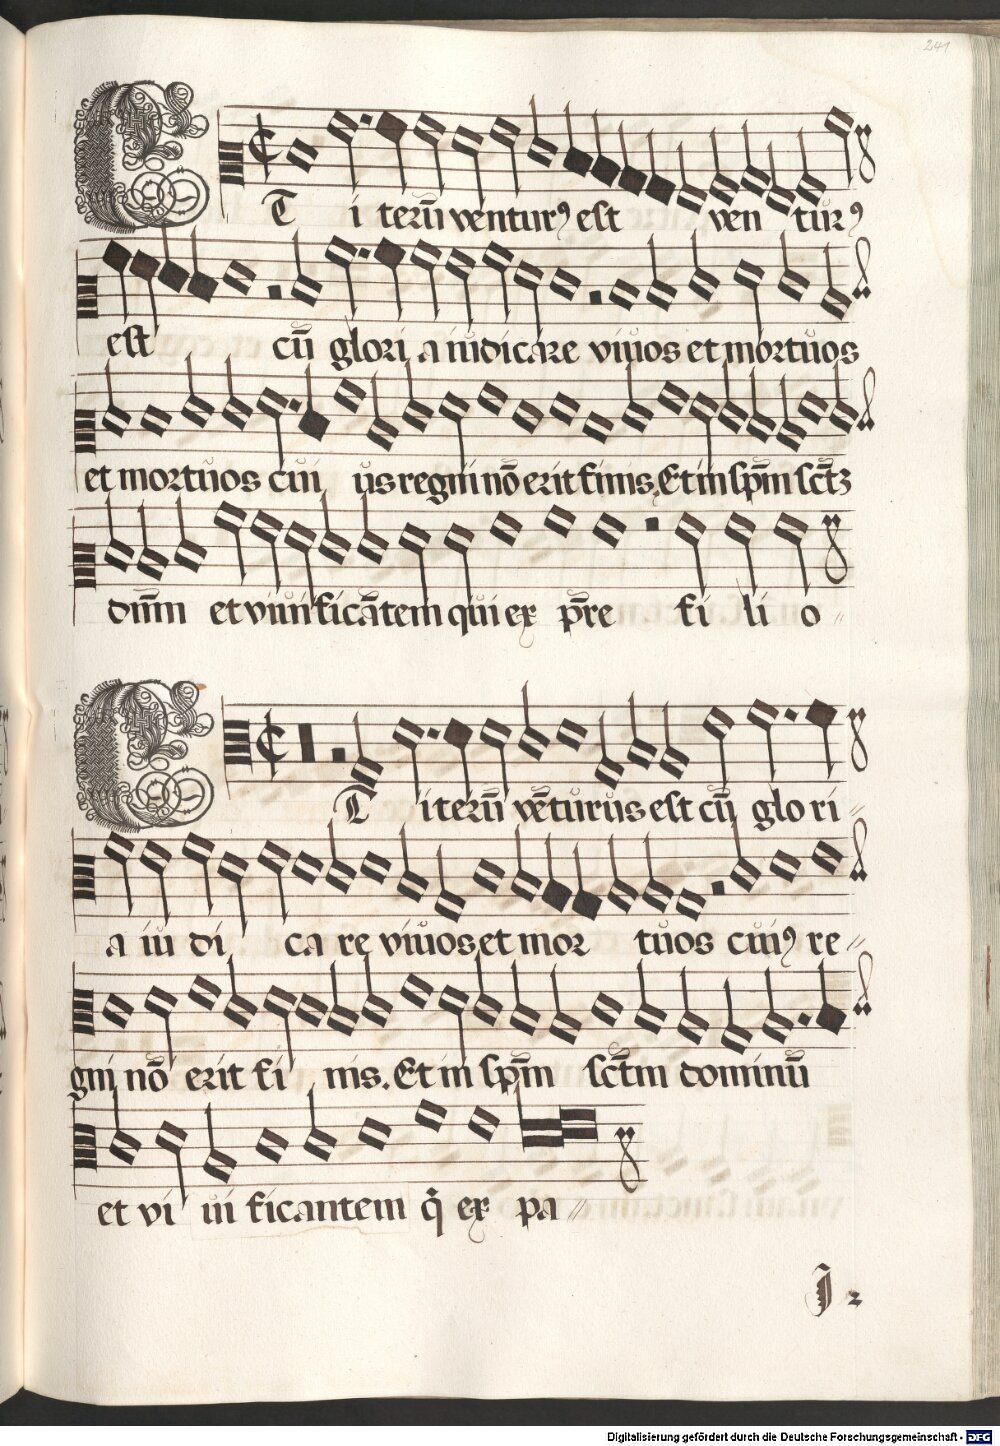 241
Et iterū venturꝰ est ven turꝰ
est cū glori a iudicare vivos et mortuos
et mortuos cuius regni nō erit finis. Et in sp̄m sctꝫ
dn̄m et vivificātem qui ex pr̄e fi li o
Et iterū vēturus est cū glo ri
a iu di ca re vivos et mor tuos cuiꝰ re
gni nō erit fi nis. Et in sp̄m sct̄m dominū
et vi vi ficantem q̇ ex pa
J 2
Digitalisierung gefördert durch die Deutsche Forschungsgemeinschaft - DFG